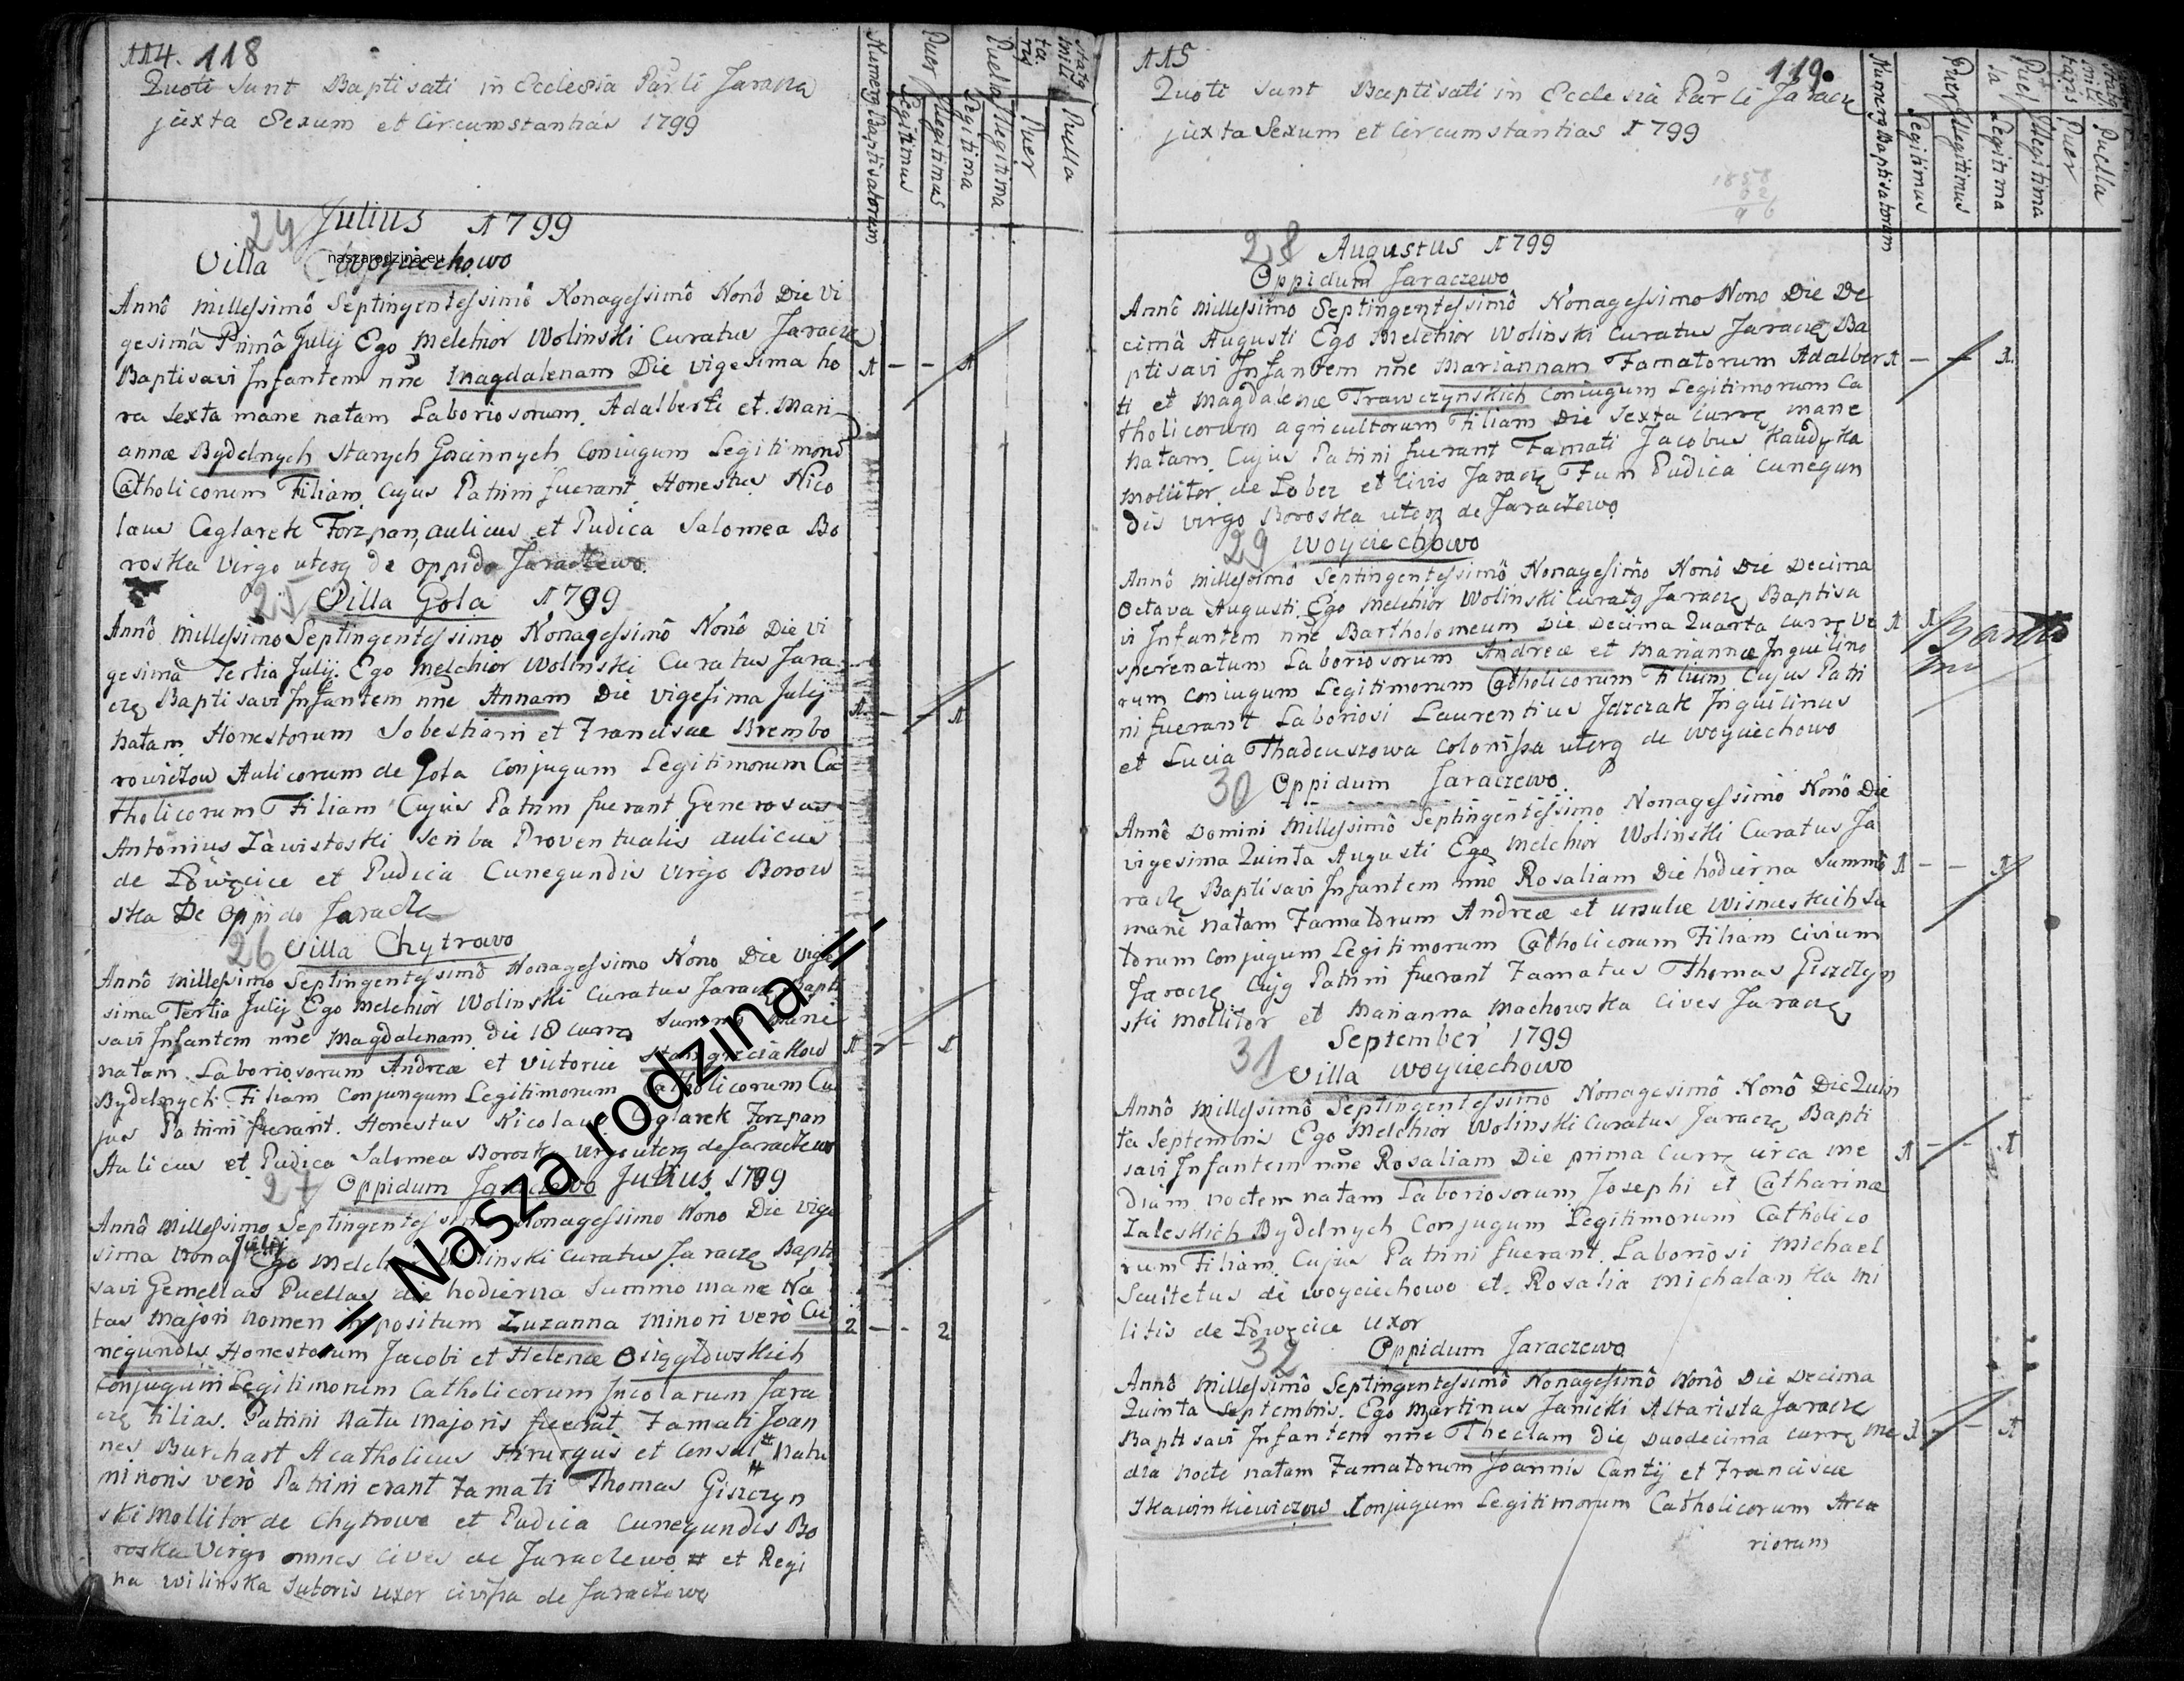 114. 118
Quoti Sunt Baptisati in Ecclesia Par̃li Jaracza
juxta Sexum et Circumstantias 1799
Numerg Baptisatorum
Puer
Legitimus
Illegitimus
Puella
Legitima
Illegitima
Statg mili ta. ris
Puer
Puella
24 Julius 1799
Villa Woyciechowo
naszarodzina.eu
Annô Millessimô Septingentessimô Nonagessimô Nonô Die Vi
gesimâ Primâ Julij Ego Melchior Wolinski Curatus Jaracze
Baptisavi Infantem nñe Magdalenam Die vigesima ho
ra Sexta mane natam Laboriosorum Adalberti et Mari
annæ Bydelnych Starych Goscinnych Coniugum Legitimoro
Catholicorum Filiam Cujus Patrini fuerant Honestus Nico
laus Ceglarek Forszpan, aulicus et Pudica Salomea Bo
roska Virgo uterq de oppido Jaraczewo.
25 Villa Gola 1799
Annô Millessimo Septingentessimo Nonagessimô Nonô Die Vi
gesimâ Tertia Julij. Ego Melchior Wolinski Curatus Jara
czę Baptisavi Infantem nñe Annam Die Vigesima Julij
Natam Honestorum Sobestiani et Francisae Brembo
rowiczow Aulicorum de Gola Conjugum Legitimorum Ca
tholicorum Filiam Cujus Patrini fuerant Generosus
Antonius Zawistoski Scriba Proventualis Aulicus
de Łowęcice et Pudica Cunegundis Virgo Borow
ska De Oppido Jaracze
26 Villa Chytrowo
Annô Millessimo Septingentessimô Nonagessimo Nono Die Vige
sima Tertia Julij Ego Melchior Wolinski Curatus Jaraczę Bapti
savi Infantem nñe Magdalenam Die 18 Currę Summo Mane
natam Laboriosorum Andreæ et Victoriæ
Bydelnych Filiam Conjungum Legitimorum Catholicorum Cu
jus Patrini fuerant. Honestus Nicolaus Ceglarek Forszpan
Aulicus et Pudica Salomea Boroska Virgo uterq de Jaraczewo
27 Oppidum Jaraczewo Julius 1799
Annô Millessimo Septingentessimo Nonagessimo Nono Die Vige
sima Nona Julij Ego Melchior Wolinski Curatus Jaraczę Bapti
savi Gemellas Puellas die hodierna Summo mane Na
tas Majori Nomen impositum Zuzanna Minori verò Cu
negundis Honestorum Jacobi et Helenæ Osięgłowskich
Conjugum Legitimorum Catholicorum Incolarum Jara
czę Filias. Patrini Natu Majoris fuerãt Famati Joan
nes Burchart Acatholicus Hirurgus et Consul # Natu
minoris verò Patrini erant Famati Thomas Giszczyn
ski Mollitor de Chytrowo et Pudica Cunegundis Bo
roska Virgo omnes Cives de Jaraczewo # et Regi
na Wilinska Sutoris uxor Civissa de Jaraczewo
.= Nasza rodzina =.
115
119.
Quoti sunt Baptisati in Ecclesia Par̃li Jaraczę
juxta Sexum et Circumstantias 1799
Numerg Baptisatorum
Puer
Legitimus
Illegitimus
Puella
Legitima
Illegitima
Statg mili taris
Puer
Puella
28 Augustus 1799
Oppidum Jaraczewo
Annô Millessimo Septingentessimô Nonagessimo Nono Die De
cimâ Augusti Ego Melchior Wolinski Curatus Jaraczę Ba
ptisavi Infantem nñe Mariannam Famatorum Adalber
ti et Magdalenæ Trawczynskich Coniugum Legitimorum Ca
tholicorum agricultorum Filiam Die Sexta Currę mane
natam Cujus Patrini fuerant Famati Jacobus Kaudyka
Mollitor de Łobez et Civis Jaraczę Tum Pudica Cunegun
dis Virgo Boroska uterq de Jaraczewo
29 Woyciechowo
Annô Millessimô Septingentessimô Nonagesimô Nonô Die Decima
Octava Augusti Ego Melchior Wolinski Curatg Jaraczę Baptisa
vi Infantem nñe Bartholomeum Die Decima Quarta Currę Ve
spere natum Laboriosorum Andreæ et Mariannæ Inquilino
rum Coniugum Legitimorum Catholicorum Filium Cujus Patri
ni fuerant Laboriosi Laurentius Jarczak Inquilinus
et Lucia Thadeuszowa Colonissa uterq de Woyciechowo
30 Oppidum Jaraczewo
Annô Domini Millessimô Septingentessimo Nonagessimô Nonô Die
vigesima Quinta Augusti Ego Melchior Wolinski Curatus Ja
raczę Baptisavi Infantem nne Rosaliam Die hodierna Summô
mane natam Famatorum Andreæ et Ursulæ Wisniewskich Su
torum Conjugum Legitimorum Catholicorum Filiam Civium
Jaraczę Cujg Patrini fuerant Famatus Thomas Giszczyn
ski Mollitor et Marianna Machowska Cives Jaraczę
September 1799
31 Villa Woyciechowo
Annô Millessimô Septingentessimo Nonagesimô Nonô Die Quin
ta Septembris Ego Melchior Wolinski Curatus Jaraczę Bapti
savi Infantem nñe Rosaliam Die prima Currę circa me
diam noctem natam Laboriosorum Josephi et Catharinæ
Zaleskich Bydelnych Conjugum Legitimorum Catholico
rum Filiam Cujus Patrini fuerant Laboriosi Michael
Scultetus de Woyciechowo et Rosalia Michalanka Mi
litis de Łowęcice Uxor
32 Oppidum Jaraczewo
Annô Millessimô Septingentessimô Nonagessimô Nonô Die Decima
Quinta Septembris. Ego Martinus Janicki Altarista Jaracze
Baptisavi Infantem nñe Theclam Die Duodecima Currę me
dia nocte natam Famatorum Joannis Cantij et Franciscæ
Skawinkiewiczow Conjugum Legitimorum Catholicorum Arca
riorum